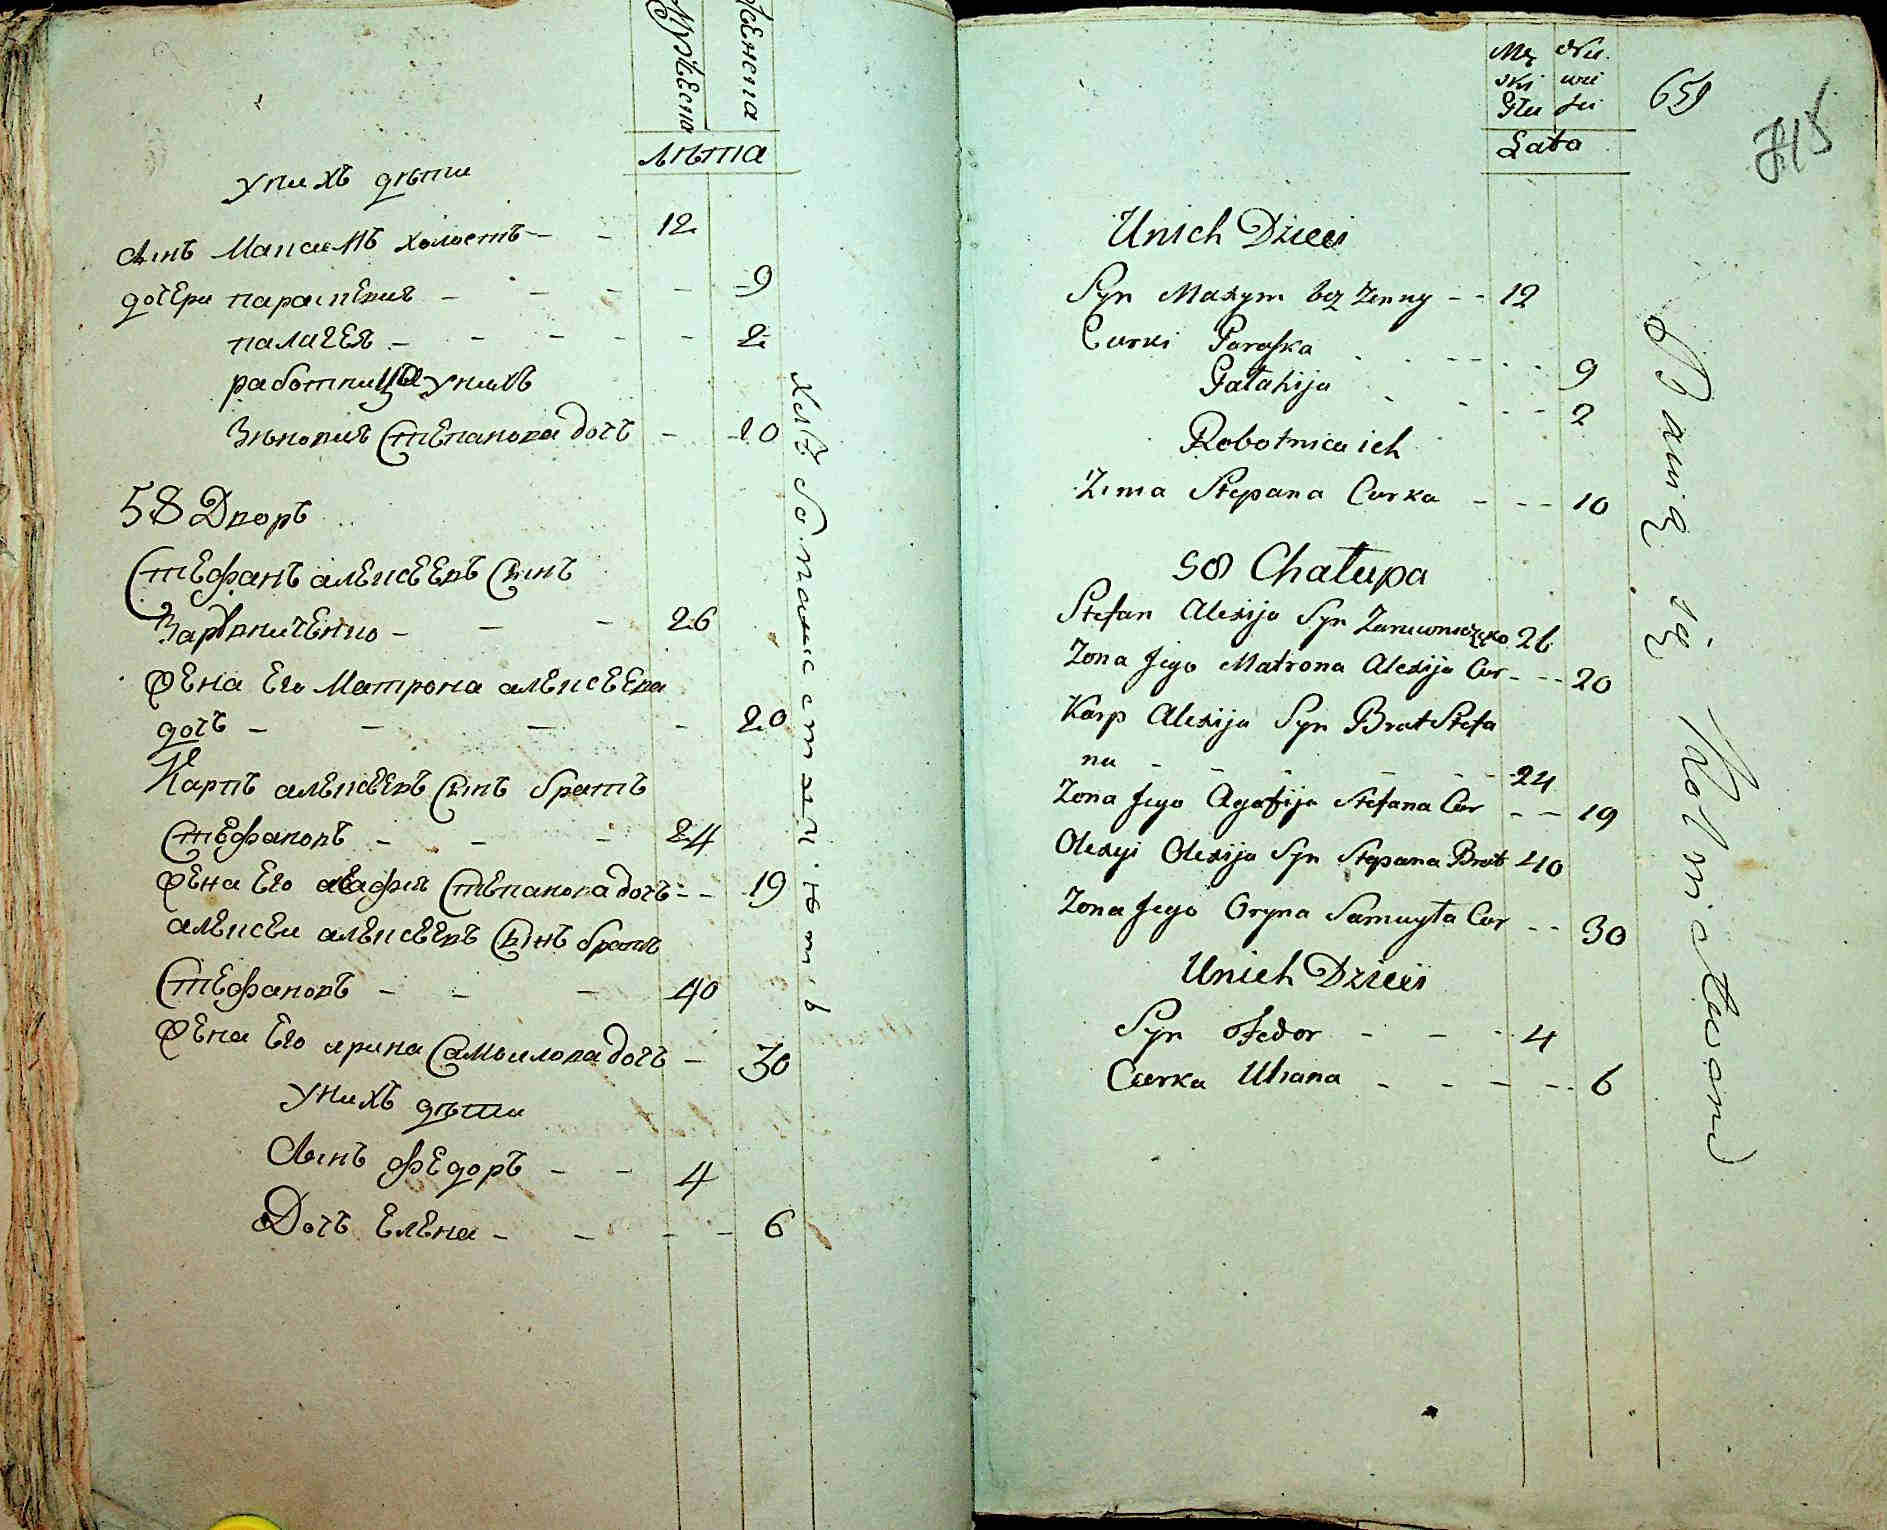 Мужеска
Женска
лѣта
у нихъ дѣти
сынъ Максимъ холостъ - - 12
дочери параскевия - - - - - 9
палагея - - - - - 2
работница у нихъ
Зѣновия Степанова дочь - - 10
58 Дворъ
Стефанъ алексеевъ сынъ
- - - 26
жена его Матрона алексеева
дочь - - - - 20
Карпъ алексеевъ сынъ братъ
Стефановъ - - - 24
жена его агафия Степанова дочь - - 19
алексеи алексеевъ сынъ братъ
Стефановъ - - - 40
жена его ярина Самоилова дочь - 30
у нихъ дѣти
сынъ федоръ - - 4
Дочь елена - - - - 6
Mę Nie
ski wie
Płu sci
Lata
659
Unich Dzieci
Syn Maxym bez żenny - - 12
Curki Paraska - - - 9
Pałahija - - - 2
Robotnica ich
Zima Stepana Curka - - - 10
58 Chałupa
Stefan Alexija Syn 26
Zona Jego Matrona Alexija Cur - - - 20
Karp Alexija Syn Brat Stefa
na - - - - - 24
Zona Jego Agafija Stefana Cur - - 19
Olexyi Olexija Syn Stepana Brat 40
Zona Jego Oryna Samuyła Cur - - 30
Unich Dzieci
Syn Fedor - - - 4
Curka Uliana - - - - - 6